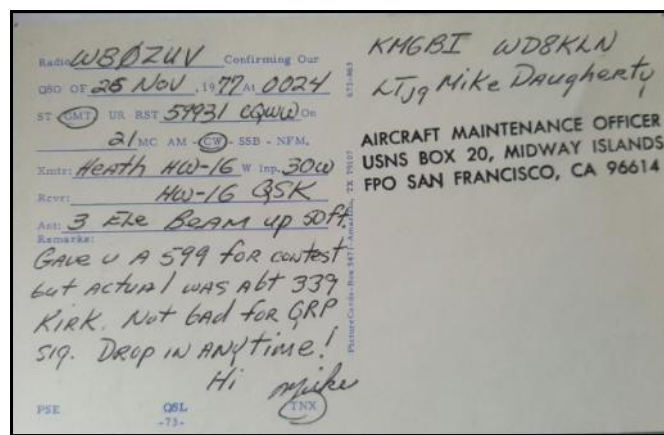 Radio WBØZUV Confirming Our
QSO OF 26 Nov, 1977 At 0024
ST - GMT UR RST 59931 CQWW On
21 MC AM - CW - SSB - NFM.
Xmtr: Heath HW-16 W Inp. 30W
Rcvr: HW-16 QSK
Ant: 3 Ele Beam up 50ft.
Remarks:
Gave u A 599 for contest
but actual was abt 339
Kirk. Not bad for QRP
sig. Drop in anytime!
Hi Mike
PSE QSL TNX
-73-
KM6BI WD8KLN
LTjg Mike Daugherty
AIRCRAFT MAINTENANCE OFFICER
USNS BOX 20, MIDWAY ISLANDS
FPO SAN FRANCISCO, CA 96614
PictureCards-Box 5471 Amarillo, TX 79107